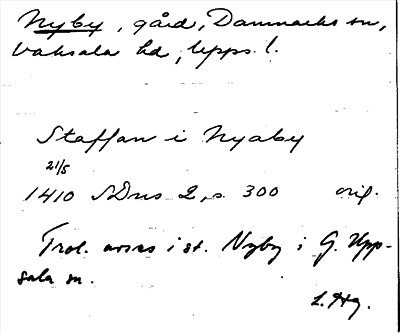 Nyby, gård, Danmarks sn,
Vaksala hd, Upps. l.
Staffan i Nyaby
21/5
1410 SDns 2, s. 300 orig.
Trol. avses i st. Nyby i G. Upp-
sala sn.
L. Hg.